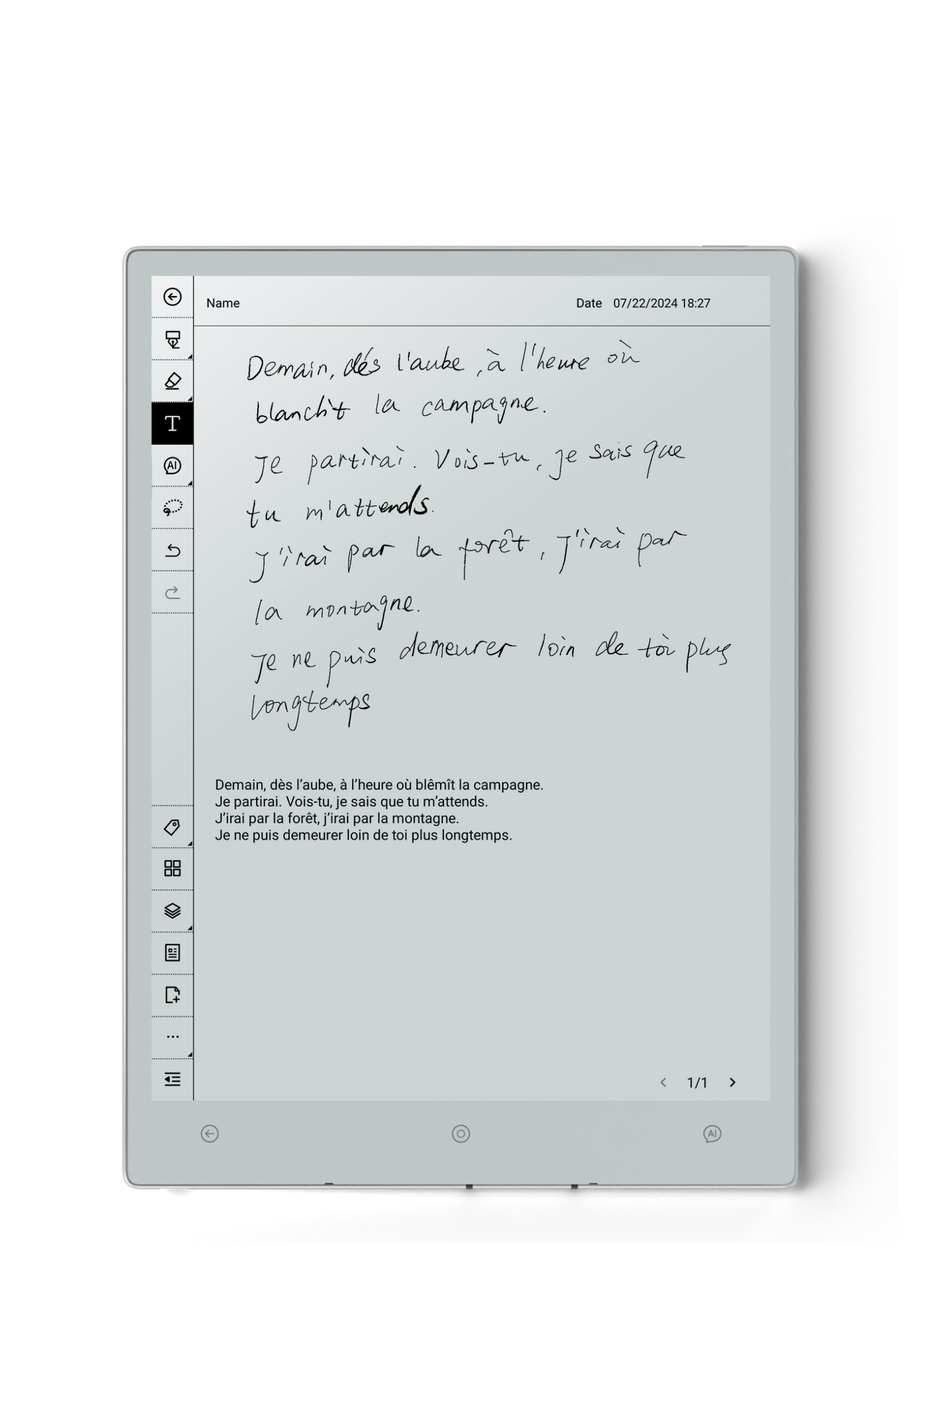 Name
Date 07/22/2024 18:27
Demain, dés l'aube, à l'heure où
blanchit la campagne.
Je partirai. Vois-tu, je sais que
tu m'attends.
J'irai par la forêt, j'irai par
la montagne.
Je ne puis demeurer loin de toi plus
longtemps
Demain, dès l’aube, à l’heure où blêmît la campagne.
Je partirai. Vois-tu, je sais que tu m’attends.
J’irai par la forêt, j’irai par la montagne.
Je ne puis demeurer loin de toi plus longtemps.
T
AI
1/1
AI